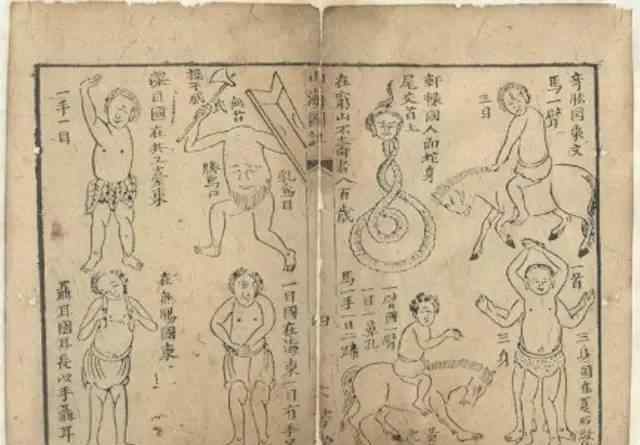 奇肱国東文
馬一臂
三目
軒轅國人面蛇身
尾交首上
在窮山不壽者八百歳
一首
三身國在夏后
三身
一臂國一臂
一目一鼻孔
馬一手一目二蹄
山海
四
乳為目
無首
臍為口
操干戚
深目國在共工臺東
一手一目
一目國在海東一目有手
在無腸國東
聶耳國耳長以手聶耳